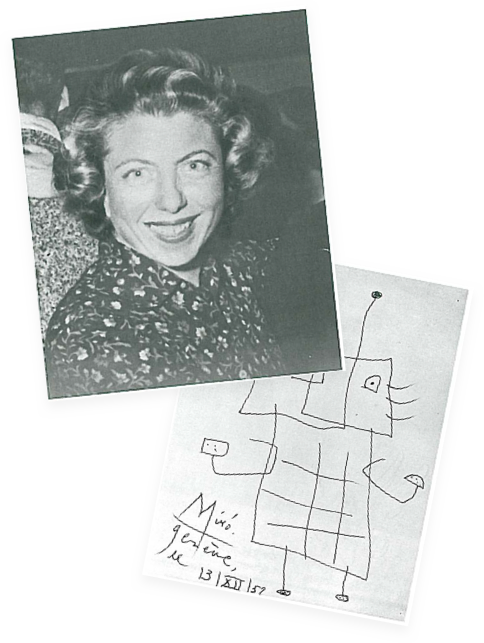 Miró.
genève,
le 13/XII/57